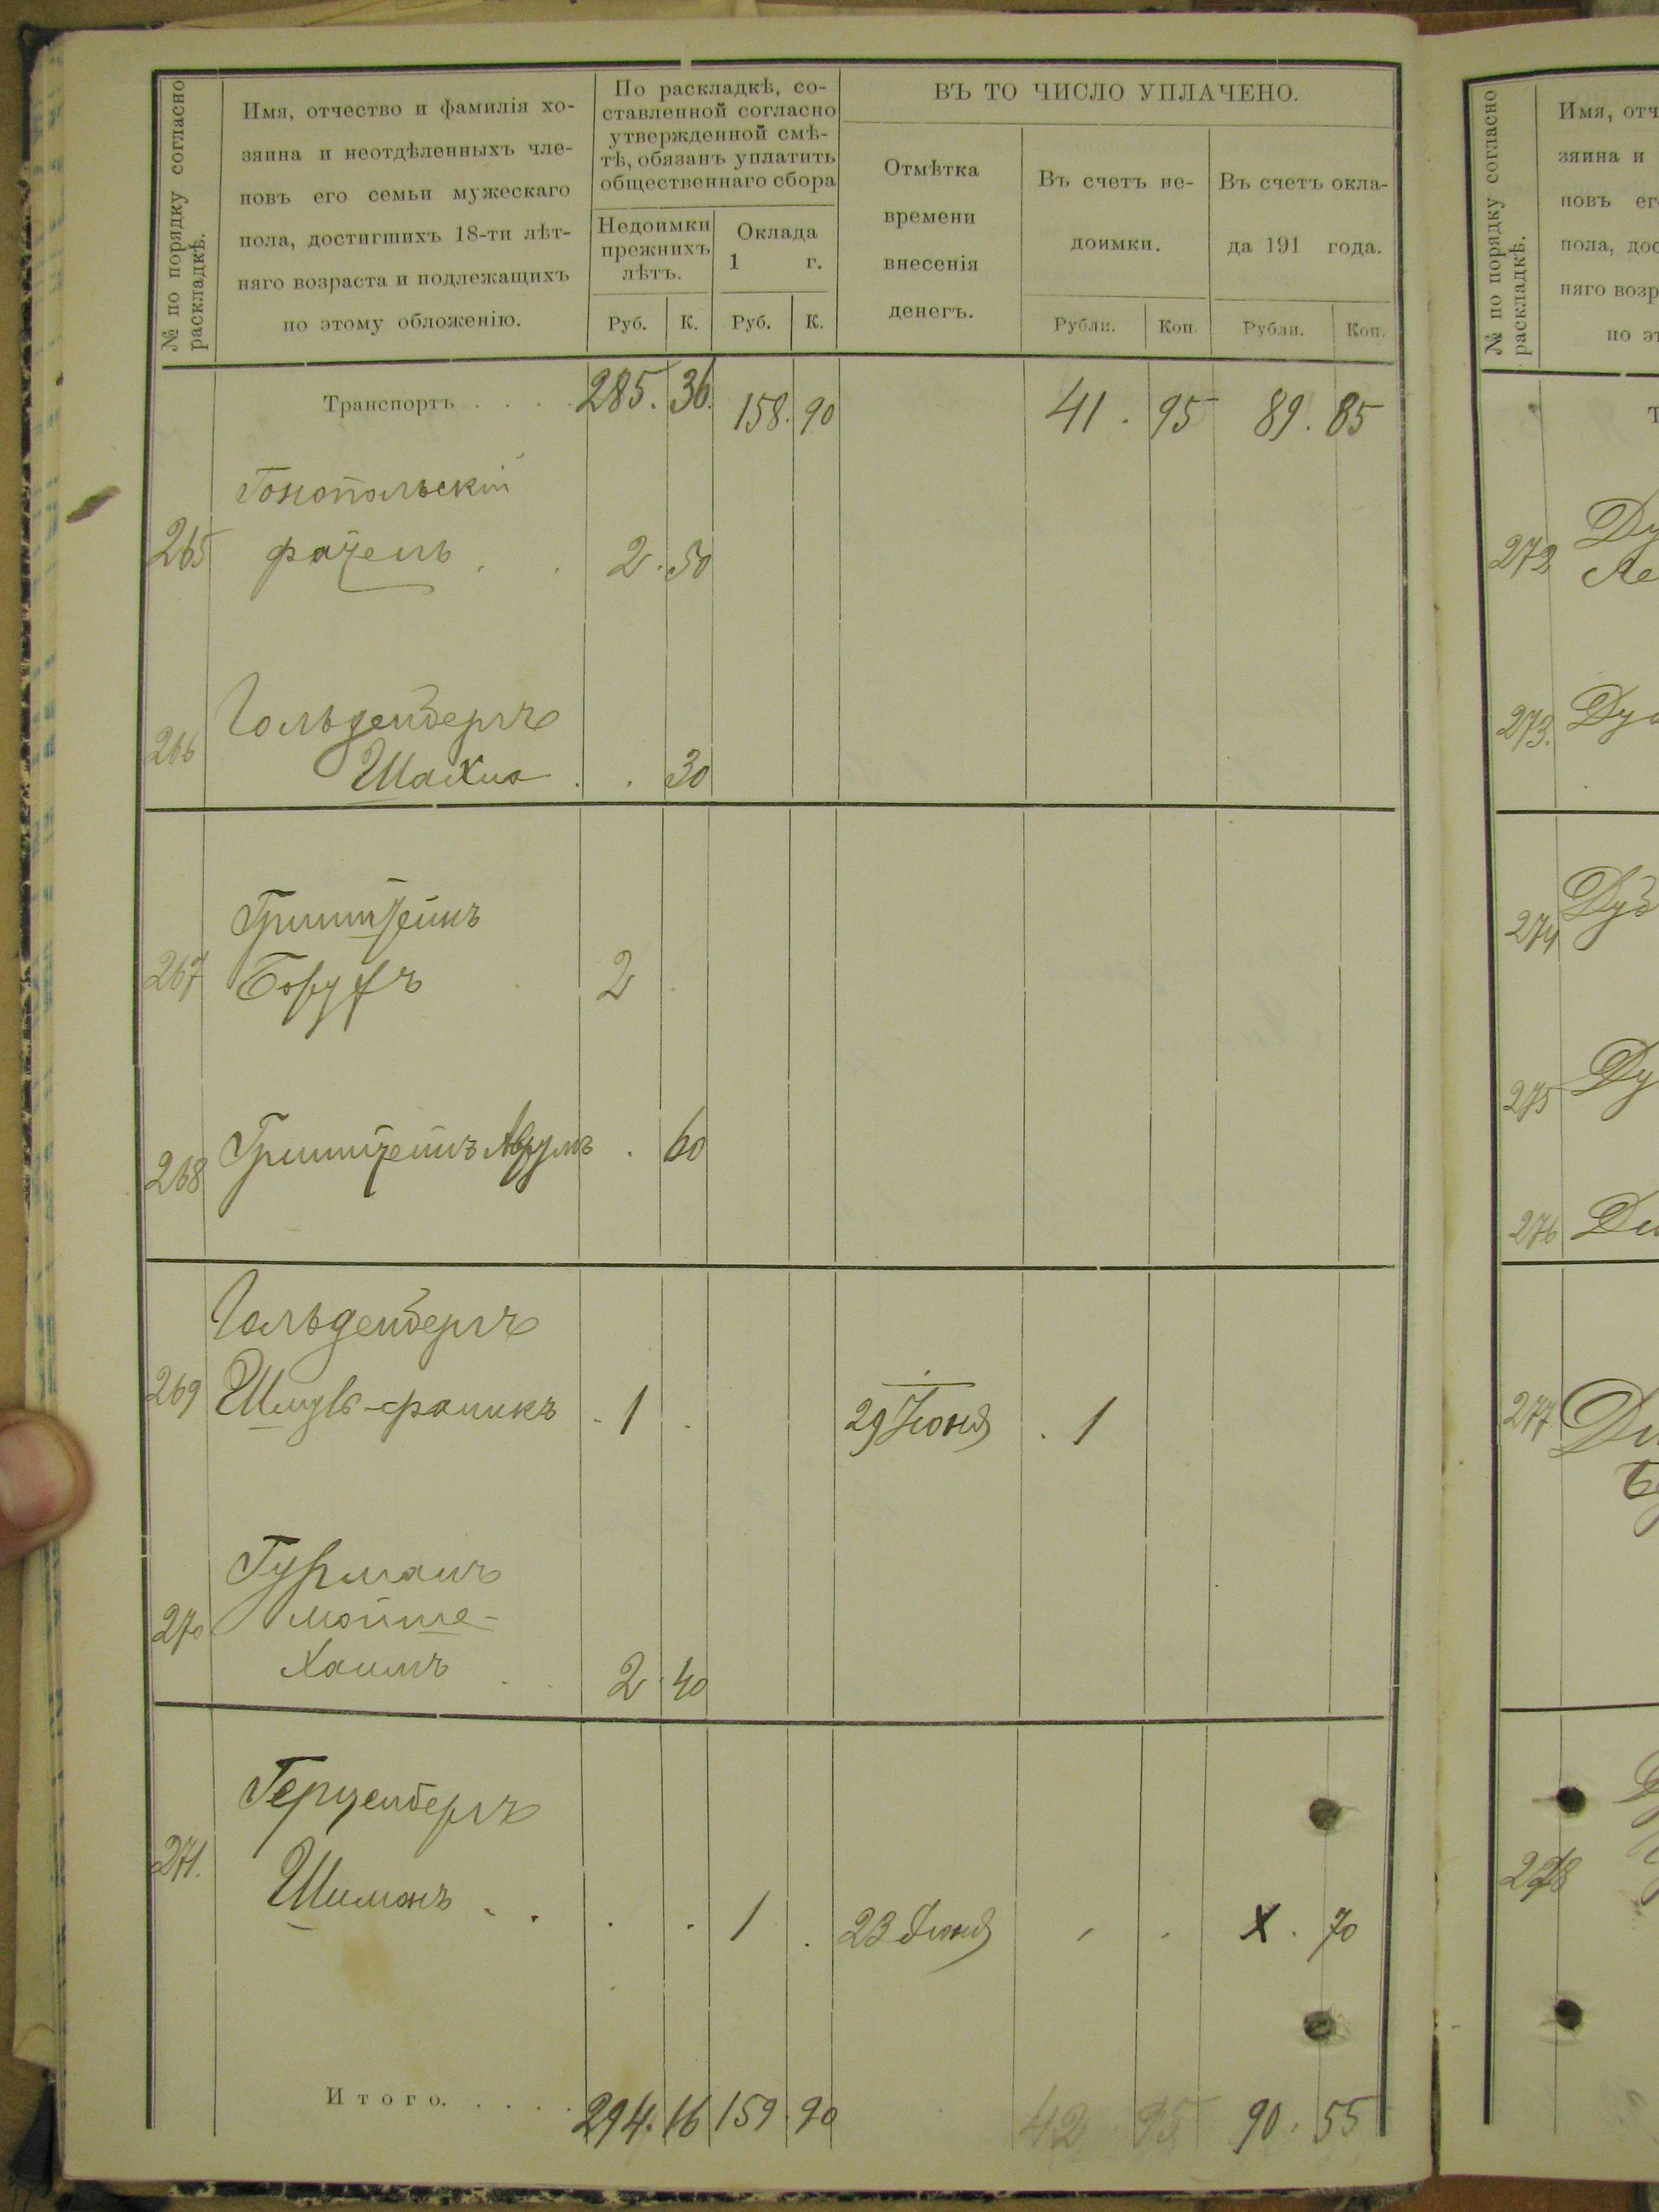 № по порядку согласно
раскладкѣ.
Имя, отчество и фамилія хо-
зяина и неотдѣленныхъ чле-
новъ его семьи мужескаго
пола, достигшихъ 18-ти лѣт-
няго возраста и подлежащихъ
по этому обложенію.
По раскладкѣ, со-
ставленной согласно
утвержденной смѣ-
тѣ, обязанъ уплатить
общественнаго сбора
Недоимки
прежнихъ
лѣтъ.
Оклада
1 г.
Руб. К. Руб. К.
ВЪ ТО ЧИСЛО УПЛАЧЕНО.
Отмѣтка
времени
внесенія
денегъ.
Въ счетъ не-
доимки.
Рубли. Коп
Въ счетъ окла-
да 191 года.
Рубли. Коп.
Транспортъ . . . . 285. 36. 158. 90 41. 95 89. 85
265 2. 50
266 Гольденбергъ
. 30
267
Борухъ 2
268 Аврумъ . 60
Гольденбергъ
269 1 29 Іюня 1
Гурманъ
270 Мойше-
Хаимъ 2. 40
Герценбергъ
271. Шимонъ . . . . 1 . 23 Іюня . . х. 70
Итого. . . . . 294. 16 159. 90 42 95 90. 55
№ по порядку согласно
раскладкѣ.
Имя, отч
зяина и
новъ ег
пола, дос
няго возр
по эт
Т
272 Ду
Ле
273.
274 Дуб
275 Ду
276
277
278